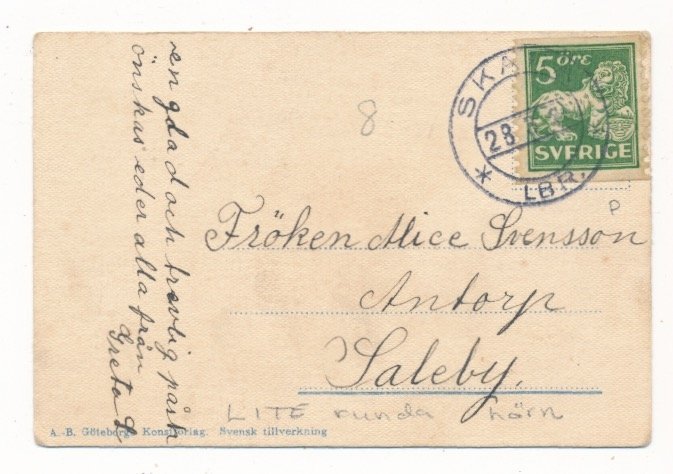 en glad och trevlig påsk
önskas eder alla från
Greta L
8
5 öre
SVERIGE
SKA
28
LBR.
P
Fröken Alice Svensson
Antorp
Saleby.
LITE runda hörn
A.-B. Göteborgs Konstförlag. Svensk tillverkning